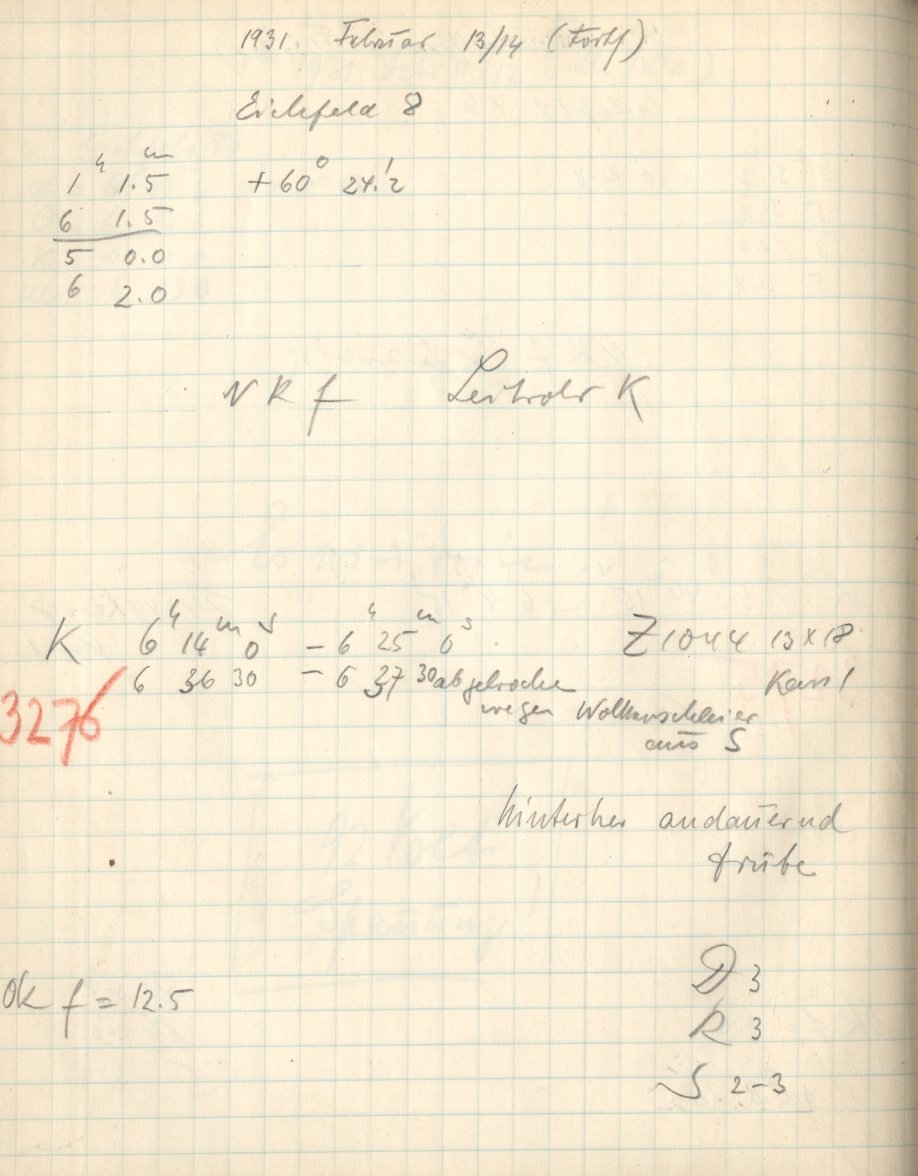 1931. Februar 13/14 (Fortf)
Eichfeld 8
1ʰ 1.ᵐ5 +60° 24.'2
6 1.5
5 0.0
6 2.0
N R f Leitrohr K
K 6ʰ 14ᵐ 0ˢ – 6ʰ 25ᵐ 0ˢ Z 1044 13×18
6 36 30 – 6 37 30 abgebrochen
wegen Wolkenschleier
aus S
3276
hinterher andauernd
trübe
Ok f = 12.5
D 3
R 3
S 2–3